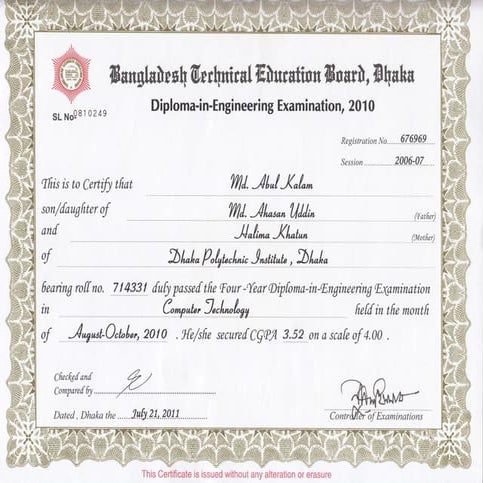 Bangladesh Technical Education Board, Dhaka
Diploma-in-Engineering Examination, 2010
SL No 0810249
Registration No. 676969
Session 2006-07
This is to Certify that Md. Abul Kalam
son/daughter of Md. Ahasan Uddin (Father)
and Halima Khatun (Mother)
of Dhaka Polytechnic Institute , Dhaka
bearing roll no. 714331 duly passed the Four -Year Diploma-in-Engineering Examination
in Computer Technology held in the month
of August-October, 2010 . He/she secured CGPA 3.52 on a scale of 4.00 .
Checked and
Compared by
Dated , Dhaka the July 21, 2011
Controller of Examinations
This Certificate is issued without any alteration or erasure